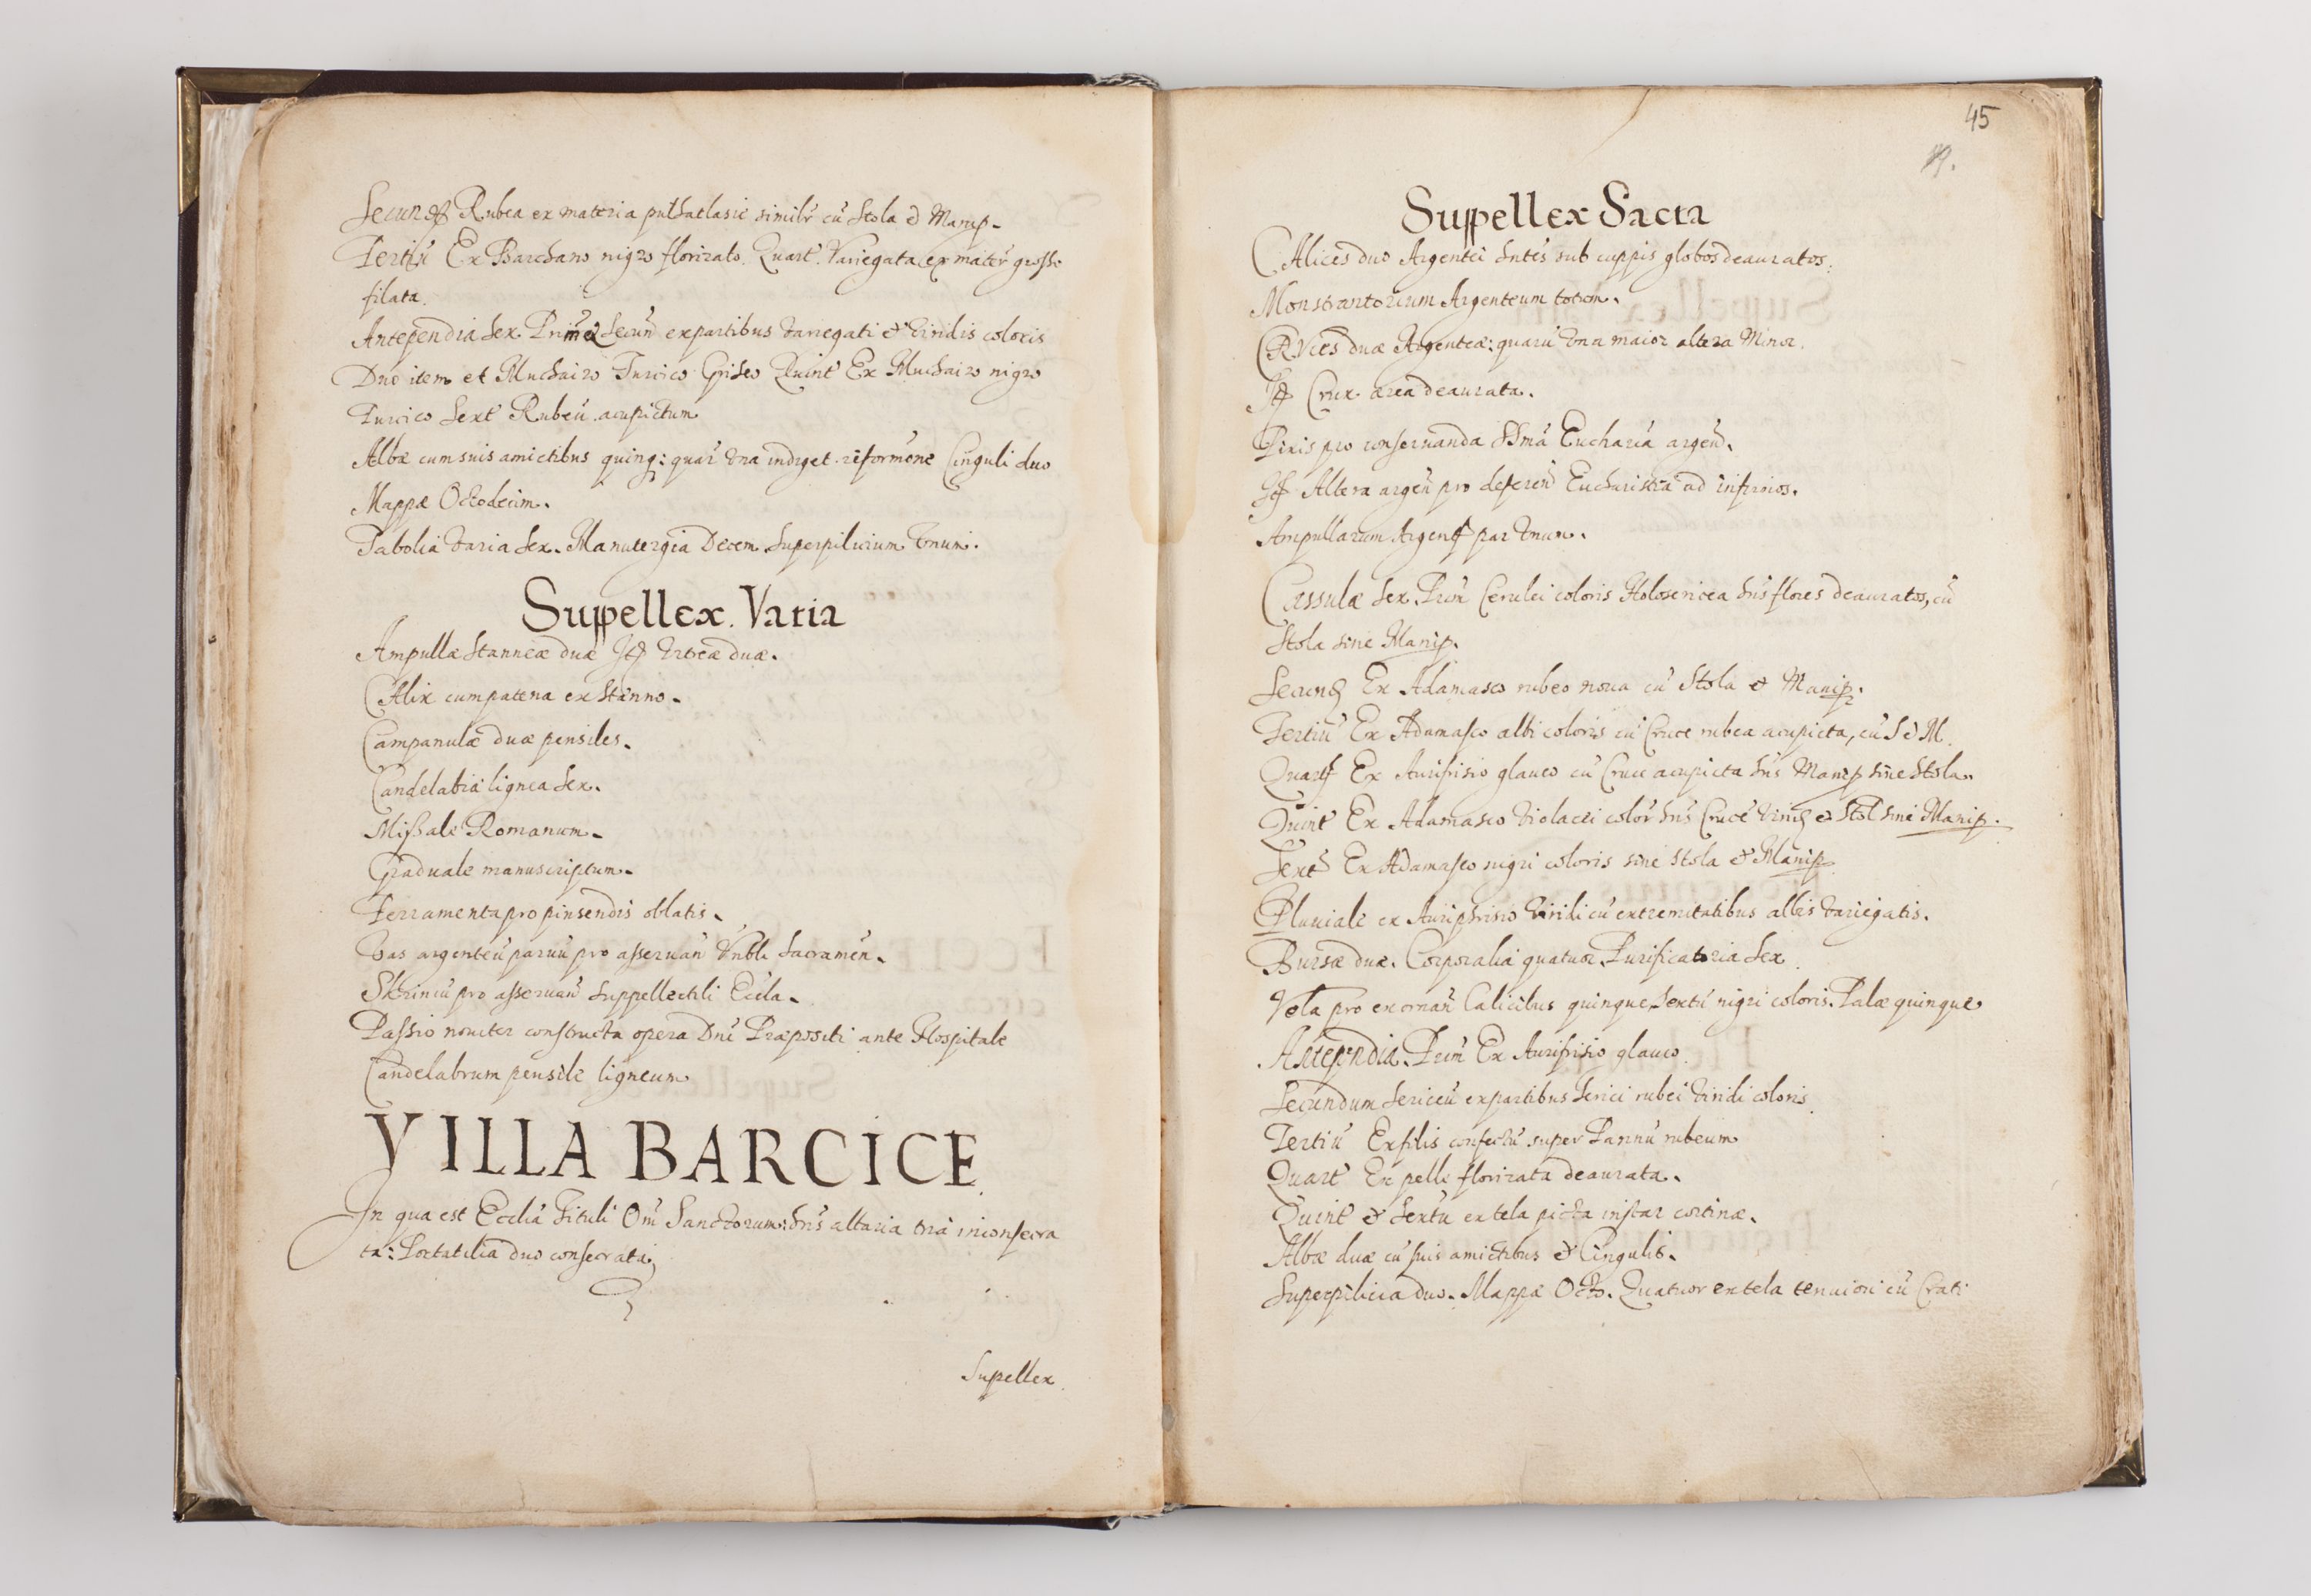 Secund Rubea ex materia pulhatlasie similr cū Stola & Manip.
Tertiū Ex Barchano nigro florizato. Quart. Variegata ex mater grosso
filata.
Antependia Sex. Primū & Secun expartibus variegati & viridis coloris
Duo item et Muchairo Turcico Griseo Quint Ex Muchairo nigro
Turcico Sext Rubeū acupictum
Albæ cum suis amictibus quinq: quar una indiget reformone Cinguli duo
Mappæ Octodecim.
Tabolia varia sex. Manutergia Decem Superpilicium unum.
Suppellex. Varia
Ampullæ Stanneæ duæ Itē vitreæ duæ.
CAlix cum patena ex Stanno.
Campanulæ duæ pensiles.
Candelabra lignea sex.
Missale Romanum.
Graduale manuscriptum.
Ferramenta pro pinsendis oblatis.
Vas argenteū parvū pro asservan Vnble Sacramen.
Skriniū pro asservan suppellectili Eccla.
Passio noviter constructa opera Dni Præpositi ante Hospitale
Candelabrum pensile ligneum
VILLA BARCICE
In qua est Ecclia Tituli Om Sanctorum: hns altaria tria inconsecra
ta: Portatilia duo consecrata
Supellex
45
Suppellex Sacra
CAlices duo Argentei hntes sub cuppis globos deauratos.
Monstrantorium Argenteum totum.
CRVces duæ Argenteæ: quarū una maior altera Minor.
It Crux ærea deaurata.
Pixis pro conservanda SSma Eucharia argen.
It Altera argen pro deferen Eucharistia ad infirmos.
Ampullarum Argent par unum.
Cassulæ sex. Prim Cerulei coloris Holosericea hns flores deauratos, cū
Stola sine Manip.
Secund Ex Adamasco rubeo nova cū Stola & Manip.
Tertiū Ex Adamasco albi coloris cū Cruce rubea acupicta, cū S & M.
Quart Ex Aurifrisio glauco cū Cruce acupicta hns Manip sine Stola.
Quint Ex Adamasco violacei color hns Crucē virid & Stol sine Manip.
Sext Ex Adamasco nigri coloris sine Stola & Manip
Pluviale ex Auriphrisio viridi cū extremitatibus albis variegatis.
Bursæ duæ. Corporalia quatuor. Purificatoria Sex.
Vela pro exornan Calicibus quinque, Sextū nigri coloris. Palæ quinque
Antependia. Prim Ex Aurifrisio glauco.
Secundum Sericeū expartibus Serici rubei viridi coloris.
Tertiū Exfilis confectū super Pannū rubeum
Quart Ex pelle florizata deaurata.
Quint & Sextū ex tela picta instar cortinæ.
Albæ duæ cū suis amictibus & Cingulis.
Superpilicia duo. Mappæ Octo. Quatuor ex tela tenuiori cū Crati